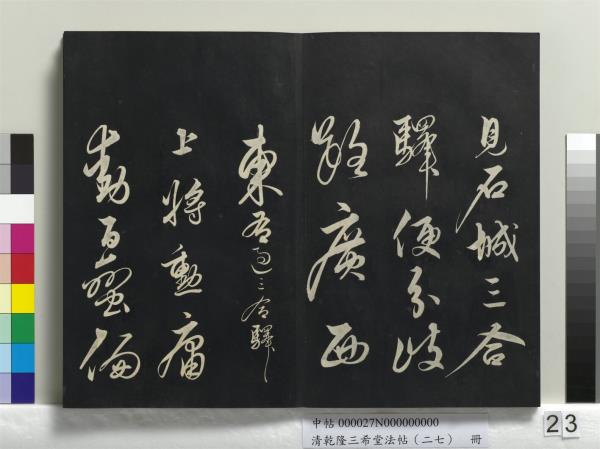 見石城三合
驛便分歧
路廣西
東右過三合驛
上將勳庸
動百蠻偏
中帖 000027N000000000
清乾隆三希堂法帖(二七) 冊
23